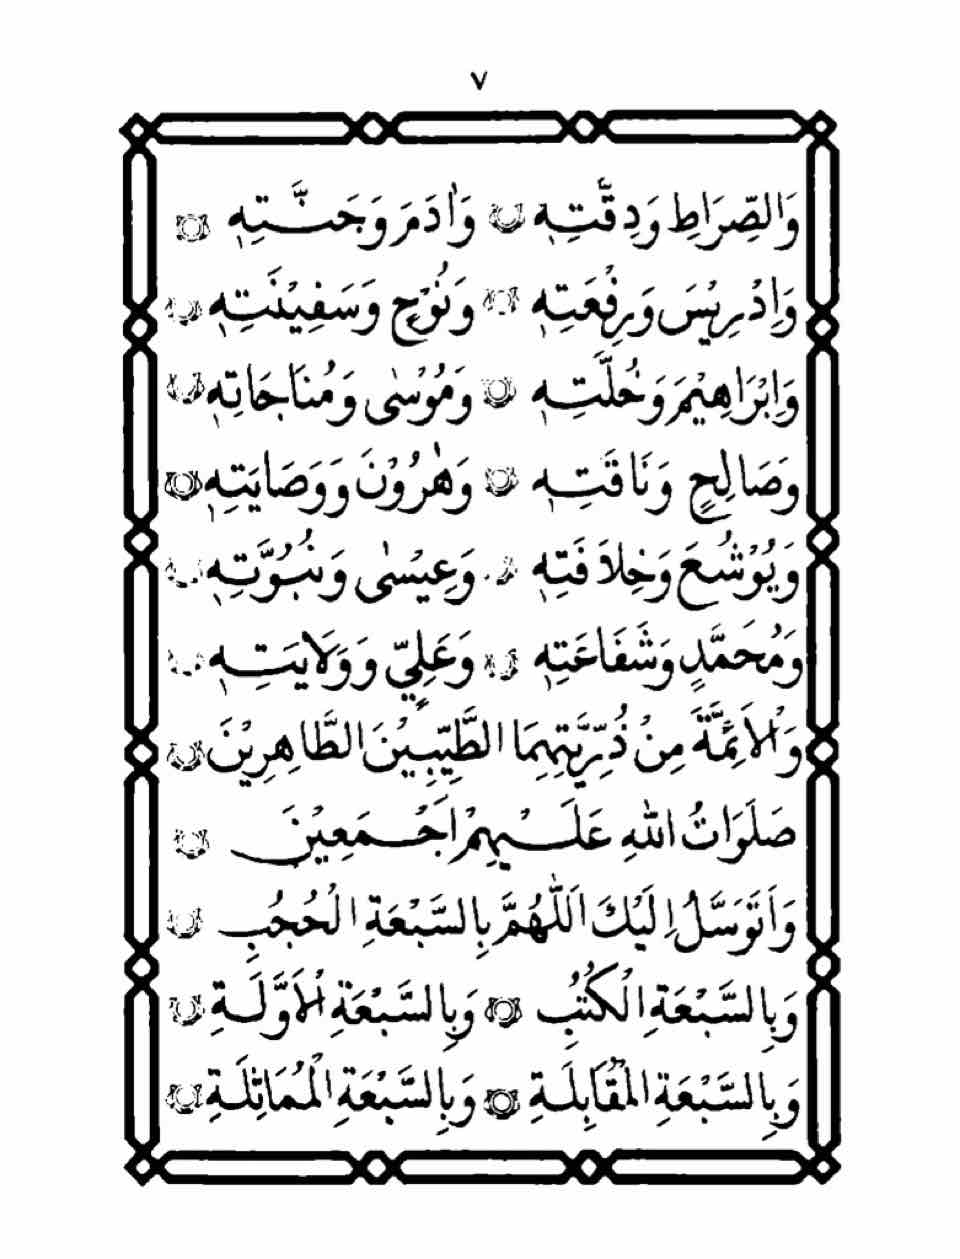 ٧
وَالصِّرَاطِ وَدِقَّتِهٖ ۝ وَاٰدَمَ وَجَنَّتِهٖ ۝
وَاِدْرِيْسَ وَرِفْعَتِهٖ ۝ وَنُوْحٍ وَسَفِيْنَتِهٖ ۝
وَاِبْرَاهِيْمَ وَخُلَّتِهٖ ۝ وَمُوْسٰى وَمُنَاجَاتِهٖ ۝
وَصَالِحٍ وَنَاقَتِهٖ ۝ وَهٰرُوْنَ وَوَصَايَتِهٖ ۝
وَيُوْشُعَ وَخِلَافَتِهٖ ۝ وَعِيْسٰى وَنُبُوَّتِهٖ ۝
وَمُحَمَّدٍ وَشَفَاعَتِهٖ ۝ وَعَلِيٍّ وَوَلَايَتِهٖ ۝
وَالْاَئِمَّةَ مِنْ ذُرِّيَّتِهِمَا الطَّيِّبِيْنَ الطَّاهِرِيْنَ ۝
صَلَوَاتُ اللهِ عَلَيْهِمْ اَجْمَعِيْنَ ۝
وَاَتَوَسَّلُ اِلَيْكَ اَللّٰهُمَّ بِالسَّبْعَةِ الْحُجُبِ ۝
وَبِالسَّبْعَةِ الْكُتُبِ ۝ وَبِالسَّبْعَةِ الْاَوَّلَةِ ۝
وَبِالسَّبْعَةِ الْمُقَابِلَةِ ۝ وَبِالسَّبْعَةِ الْمُمَاثِلَةِ ۝